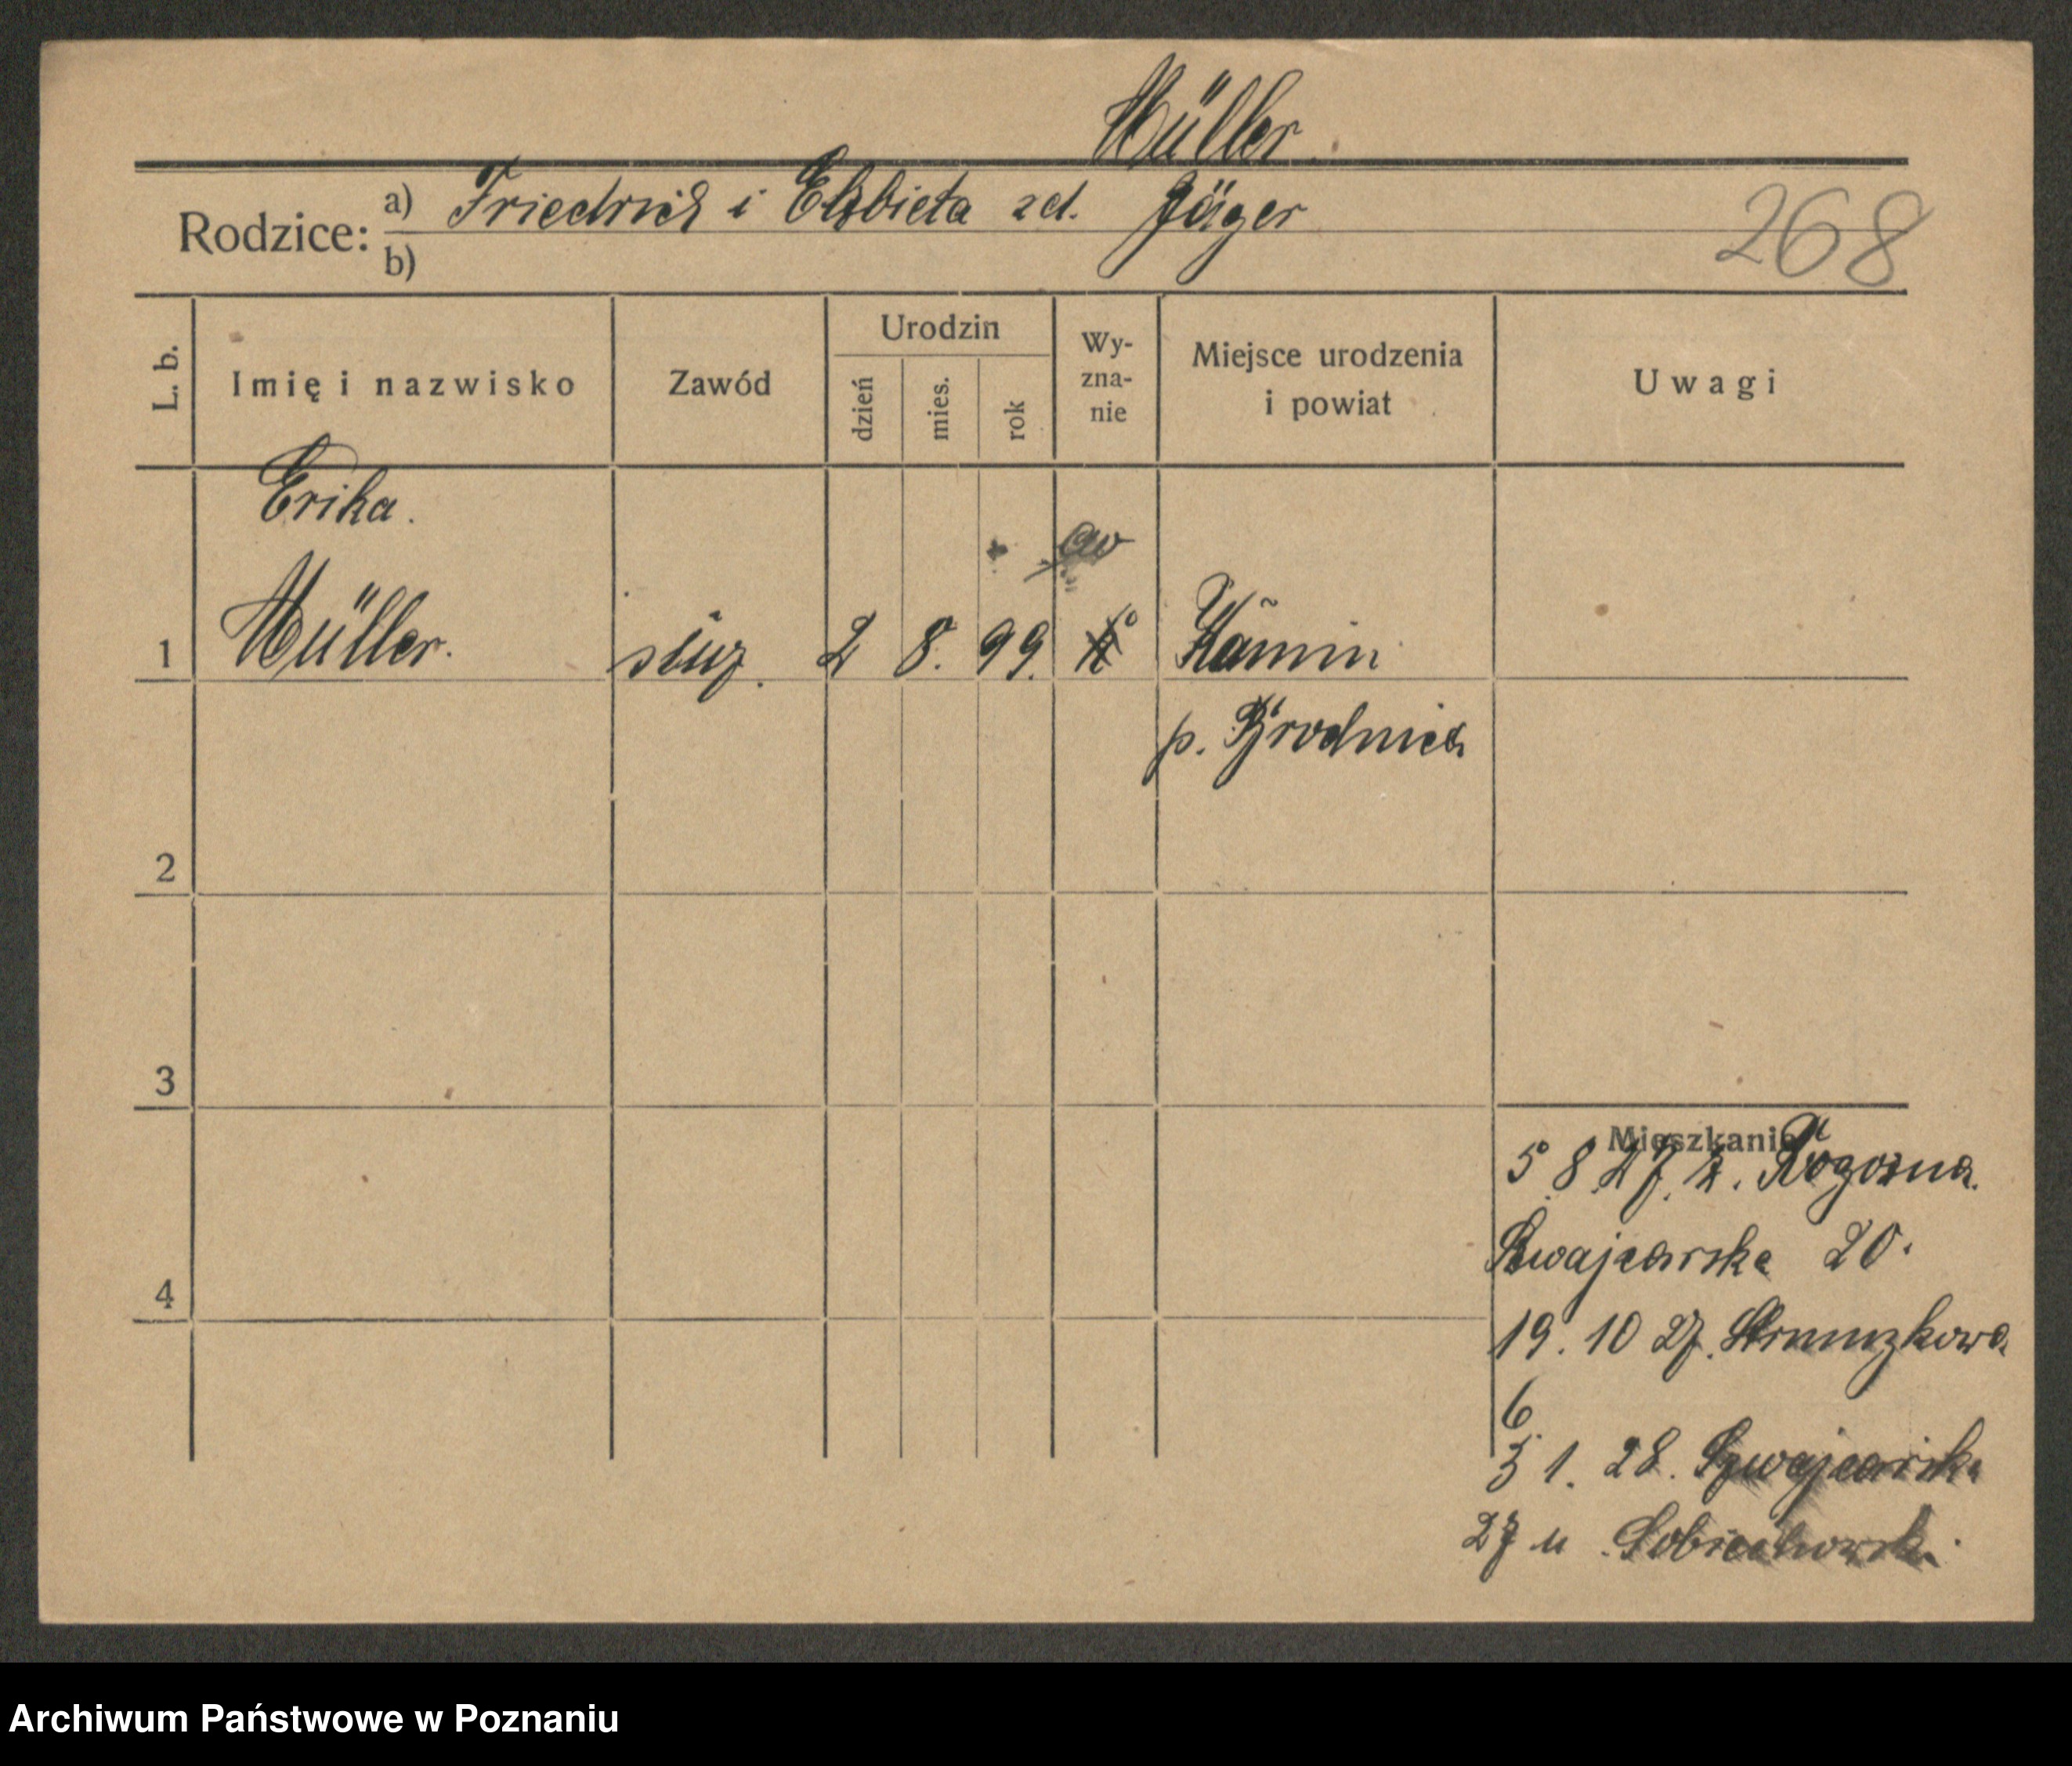 Müller
Rodzice: a) Friedrich i Elżbieta zd. Jäger
b)
268
L. b.
Imię i nazwisko
Zawód
Urodzin
dzień
mies.
rok
Wy-
zna-
nie
Miejsce urodzenia
i powiat
Uwagi
Erika.
ew
1 Müller. służ. 2 8. 99. Kamin
p. Brodnica
2
3
4
Mieszkanie
5 8 27. z. Rogoźna.
Szwajcarska 20.
19. 10 27.
6
3 1. 28. Szwajcarska
27 u.
Archiwum Państwowe w Poznaniu